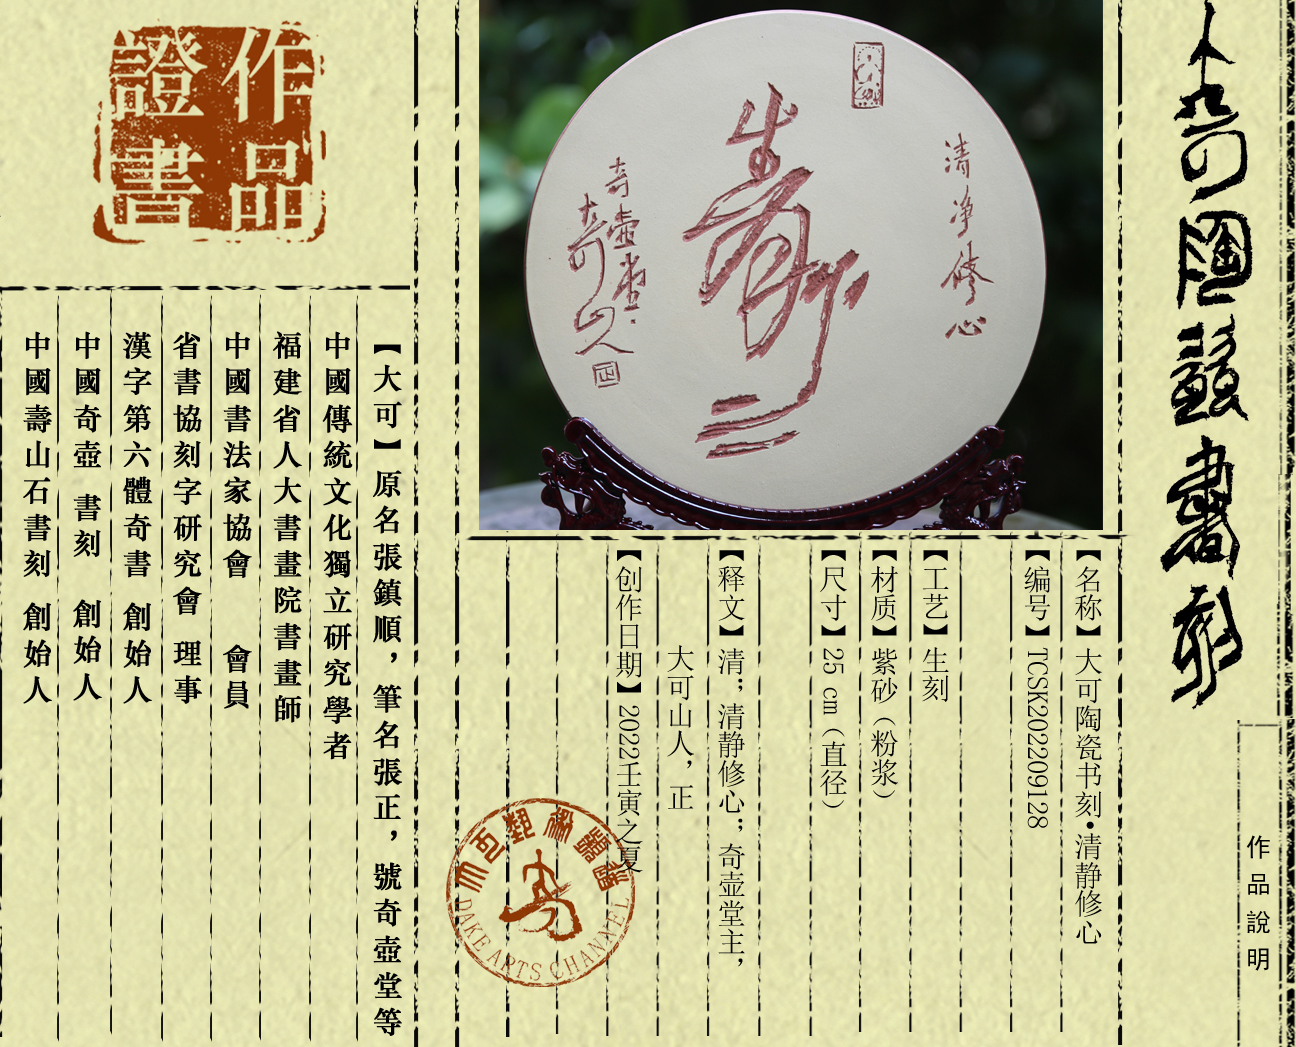 大奇陶藝書刻
作品說明
清净修心
奇壺堂
大奇山人
正
【名称】大可陶瓷书刻•清静修心
【编号】TCSK202209128
【工艺】生刻
【材质】紫砂（粉浆）
【尺寸】25 cm（直径）
【释文】清；清静修心；奇壶堂主，
大可山人，正
【创作日期】2022壬寅之夏
DAKE ARTS CHANNEL
作品
證書
【大可】原名張鎮順，筆名張正，號奇壺堂等
中國傳統文化獨立研究學者
福建省人大書畫院書畫師
中國書法家協會 會員
省書協刻字研究會 理事
漢字第六體奇書 創始人
中國奇壺 書刻 創始人
中國壽山石書刻 創始人